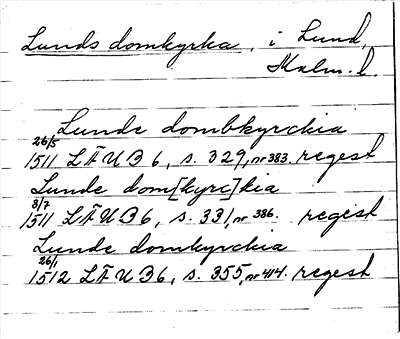 Lunds domkyrka, i Lund,
Malm. l.
Lunde dombkyrckia
26/5
1511 LÄUB 6, s. 329, nr 383. regest
Lunde dom[kyrc]kia
8/7
1511 LÄUB 6, s. 331, nr 386. regest
Lunde domkyrckia
26/1
1512 LÄUB 6, s. 355, nr 414. regest